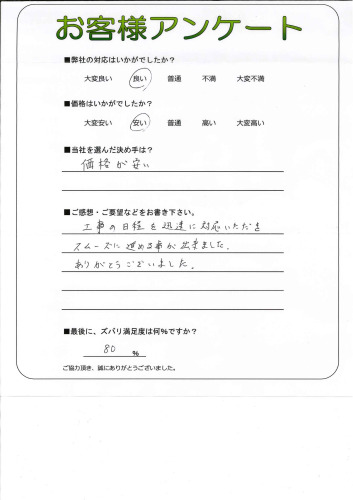 お客様アンケート
■弊社の対応はいかがでしたか？
大変良い 良い 普通 不満 大変不満
■価格はいかがでしたか？
大変安い 安い 普通 高い 大変高い
■当社を選んだ決め手は？
価格が安い
■ご感想・ご要望などをお書き下さい。
工事の日程を迅速に対応いただき
スムーズに進める事が出来ました。
ありがとうございました。
■最後に、ズバリ満足度は何%ですか？
80 %
ご協力頂き、誠にありがとうございました。